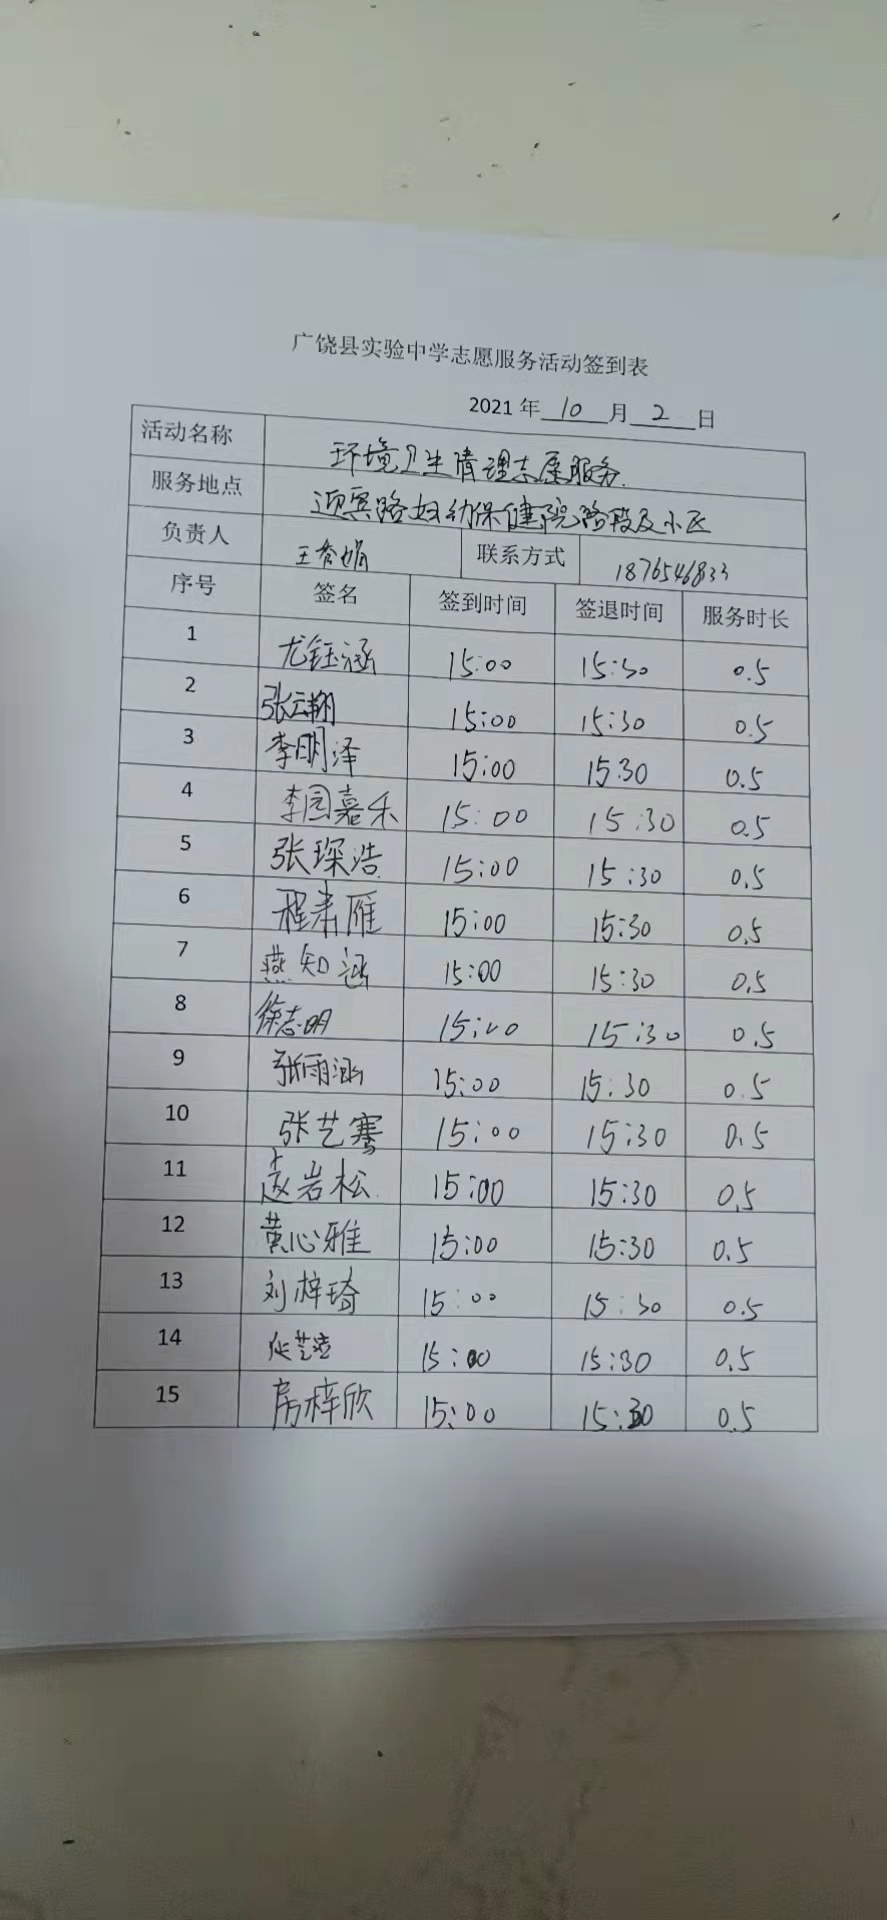 广饶县实验中学志愿服务活动签到表
2021 年 10 月 2 日
活动名称 环境卫生清理志愿服务.
服务地点 迎宾路妇幼保健院路段及小区
负责人 王秀娟 联系方式 1876546833
序号 签名 签到时间 签退时间 服务时长
1 尤钰涵 15:00 15:30 0.5
2 张云翔 15:00 15:30 0.5
3 李明泽 15:00 15:30 0.5
4 李园嘉禾 15:00 15:30 0.5
5 张琛浩 15:00 15:30 0.5
6 程肃雁 15:00 15:30 0.5
7 燕知涵 15:00 15:30 0.5
8 徐志明 15:00 15:30 0.5
9 张雨涵 15:00 15:30 0.5
10 张艺骞 15:00 15:30 0.5
11 赵岩松 15:00 15:30 0.5
12 黄心雅 15:00 15:30 0.5
13 刘梓琦 15:00 15:30 0.5
14 15:00 15:30 0.5
15 房梓欣 15:00 15:30 0.5